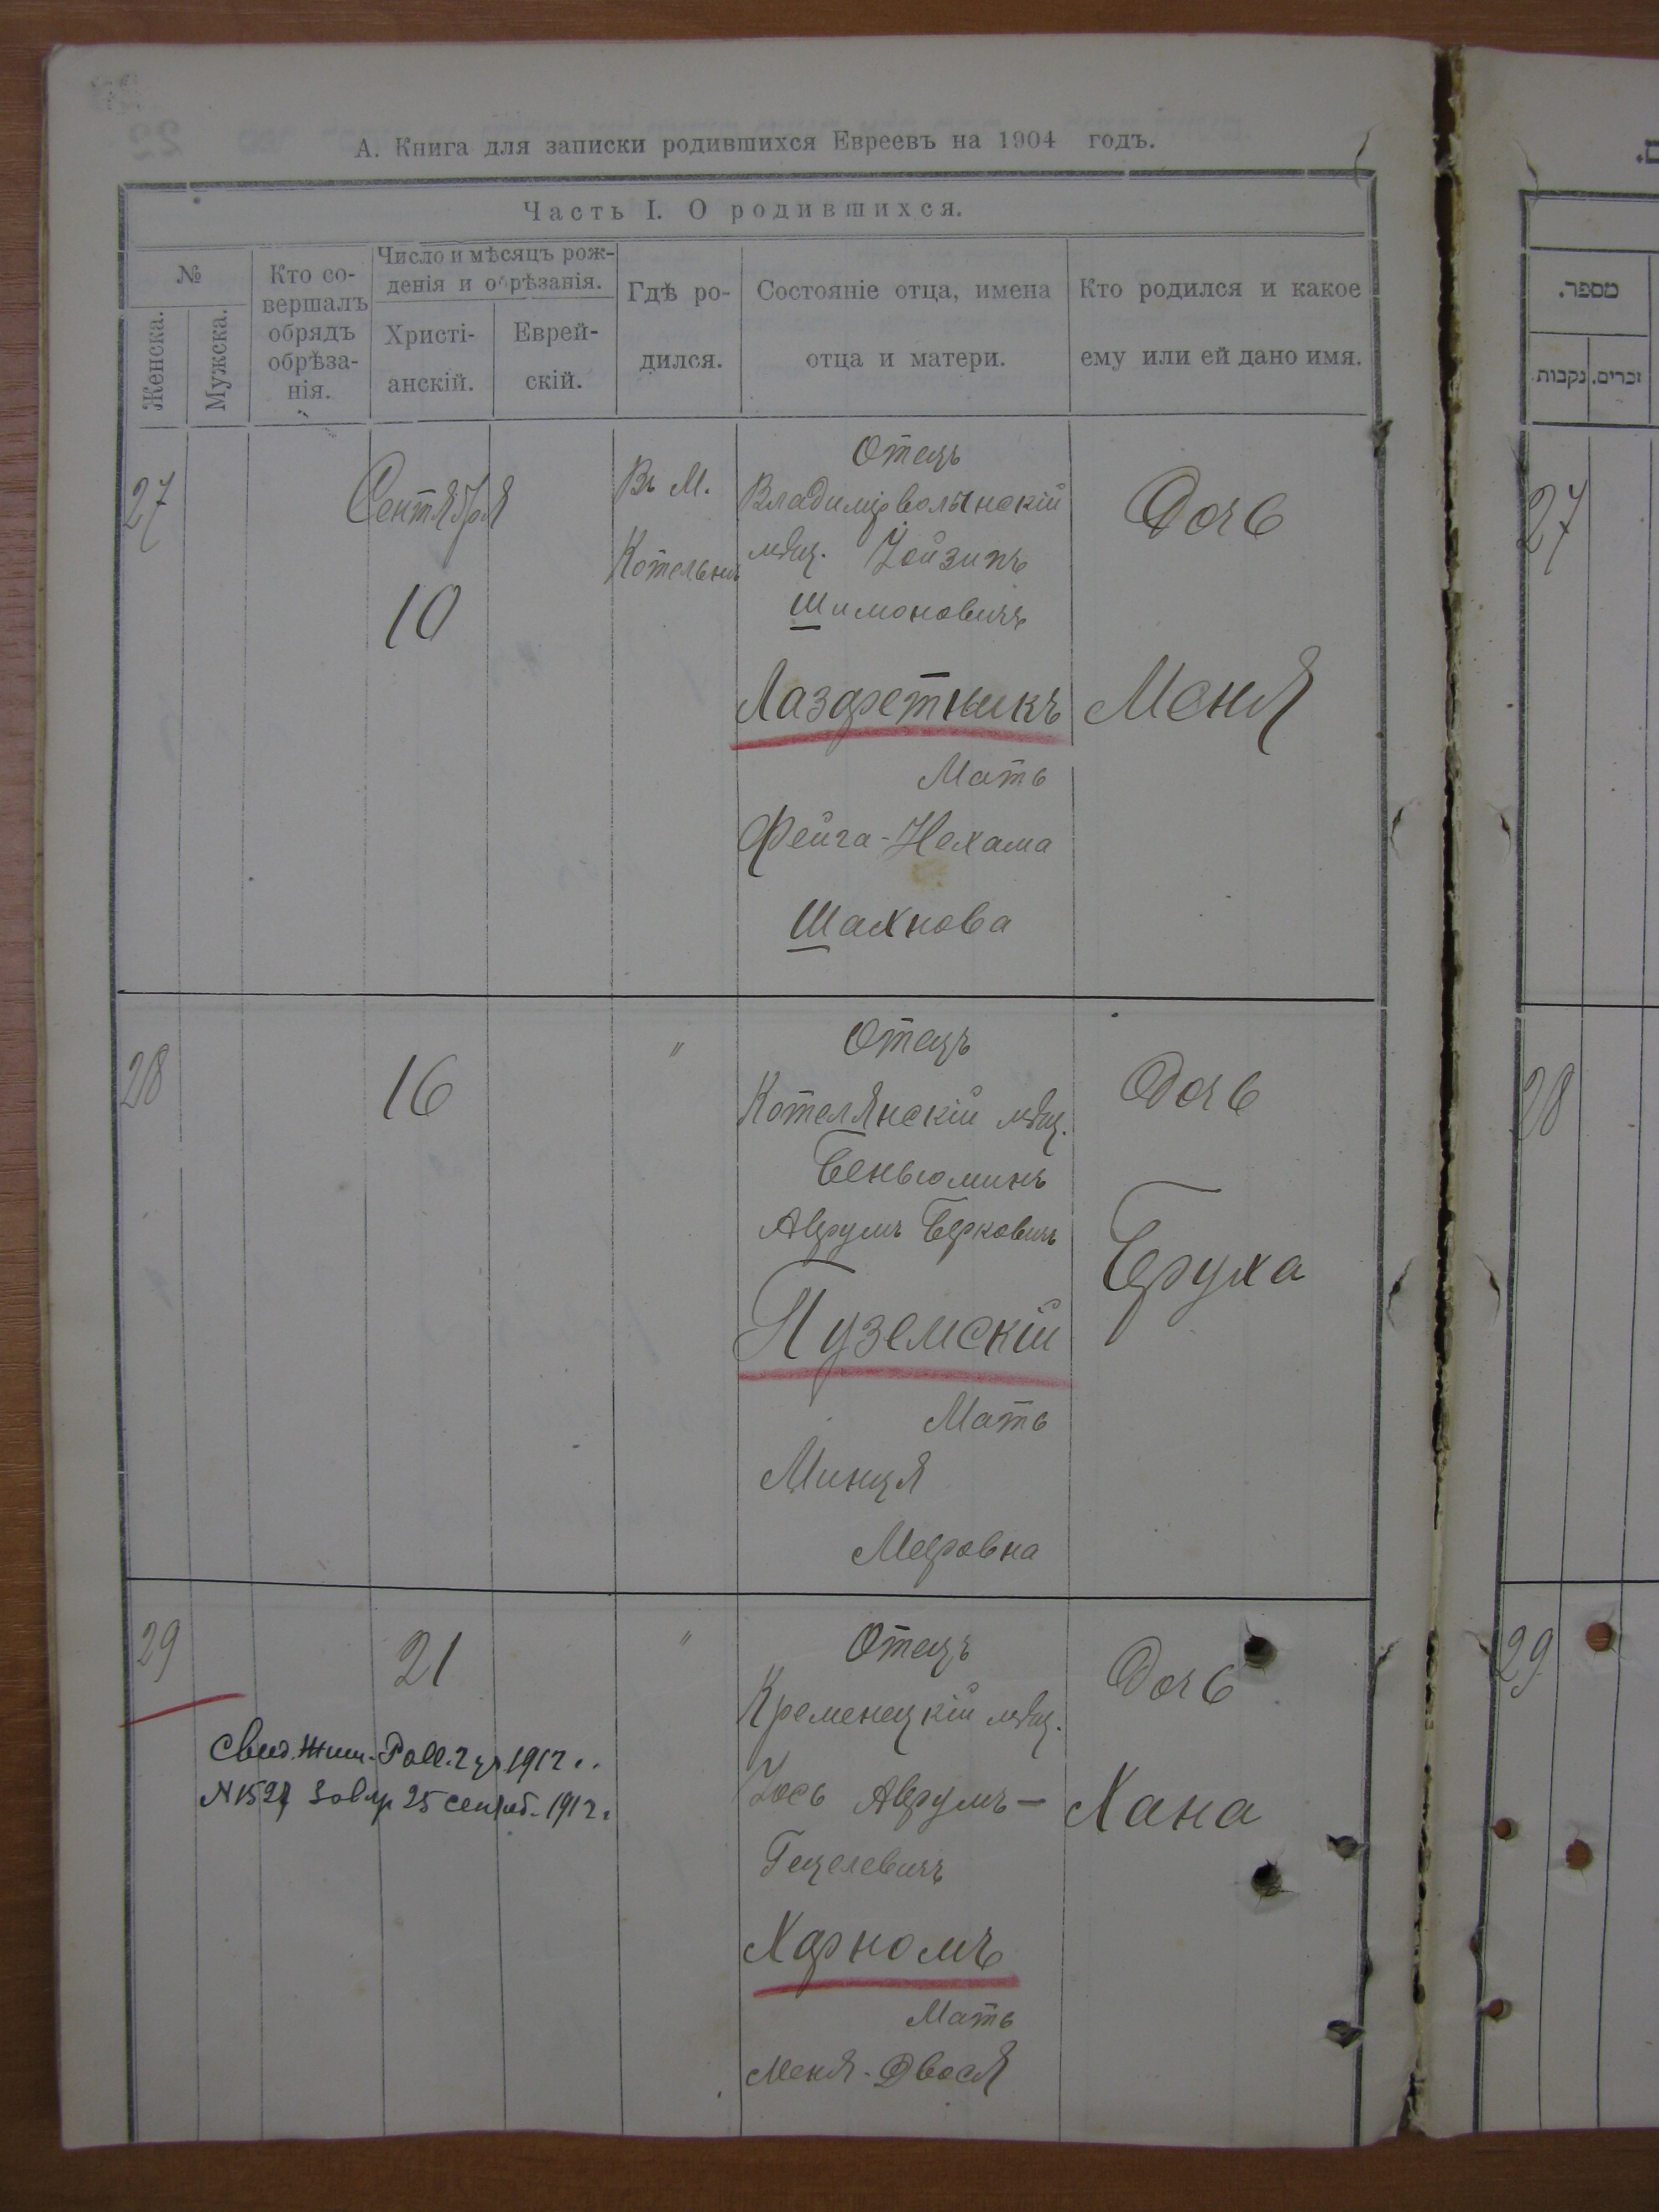 А. Книга для записки родившихся Евреевъ на 1904 годъ.
Часть I. О родившихся.
№
Женска.
Мужска.
Кто со-
вершалъ
обрядъ
обрѣза-
нія.
Число и мѣсяцъ рож-
денія и обрѣзанія.
Христі-
анскій.
Еврей-
скій.
Гдѣ ро-
дился.
Состояніе отца, имена
отца и матери.
Кто родился и какое
ему или ей дано имя.
27
Сентября
10
Въ М.
Котельнѣ
Отецъ
Владимірволынскій
мѣщ.
Шимоновичъ
Лазаретникъ
Мать
Фейга-Нехама
Шахнова
Дочь
Меня
28
16
"
Отецъ
Котелянскій мѣщ.
Беньюминъ
Аврумъ Берковичъ
Пуземскій
Мать
Минця
Мееровна
Дочь
Бруха
29
21
"
Отецъ
Кременецкій мѣщ.
Іось Аврумъ-
Гецелевичъ
Харномъ
Мать
Меня-Двося
Дочь
Хана
Свид. 1912 г.
25 сентяб. 1912 г.
מספר.
זכרים.
נקבות
27
28
29
22